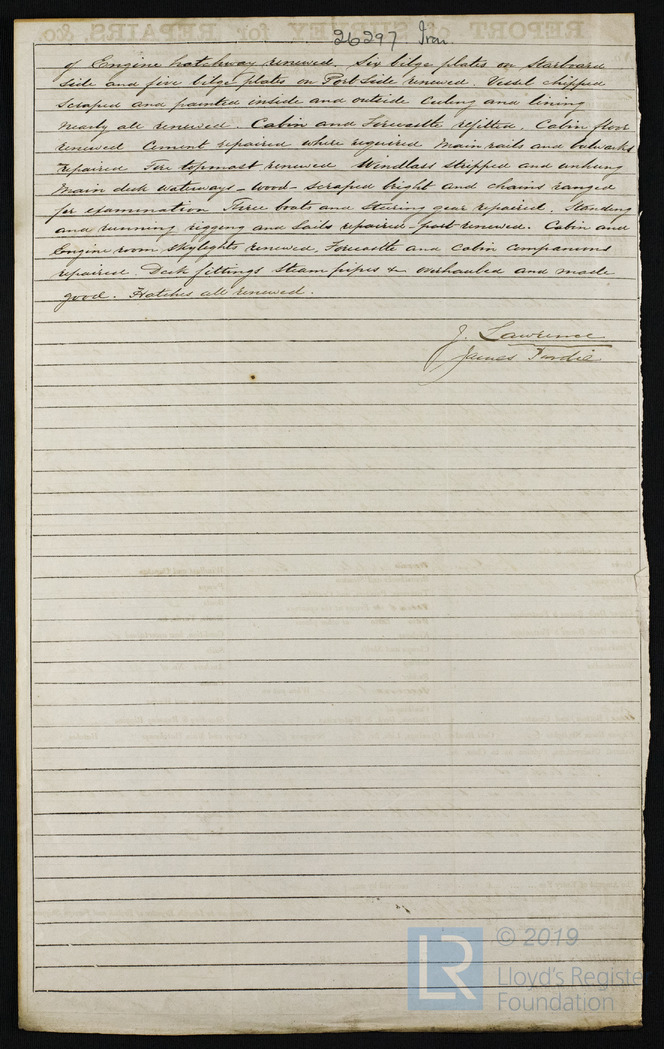 26297 Iron
of Engine hatchway renewed. Six bilge plates on Starboard
side and five bilge plates on Port Side renewed. Vessel chipped
scraped and painted inside and outside Ceiling and lining
nearly all renewed. Cabin and Forecastle refitted. Cabin floor
renewed Cement repaired where required Main rails and bulwarks
repaired Fore topmast renewed Windlass stripped and unhung
Main deck waterways - wood - scraped bright and chains ranged
for examination Three boats and steering gear repaired. Standing
and running rigging and Sails repaired - part renewed. Cabin and
Engine room skylights renewed, Forecastle and Cabin Companions
repaired. Deck fittings Steam pipes & overhauled and made
good. Hatches all renewed.
J. Lawrence
James
© 2019
LR
Lloyd's Register
Foundation